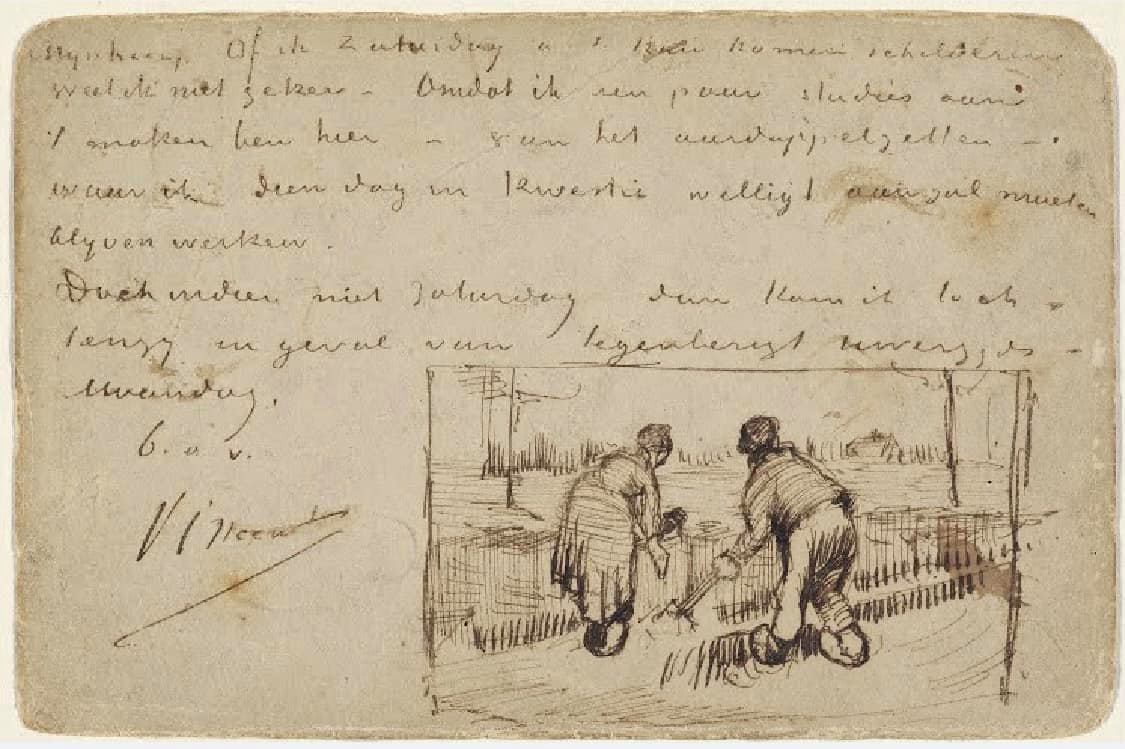 Mynheer, Of ik Zaturdag a s. kan komen schilderen
weet ik niet zeker – Omdat ik een paar studies aan
't maken ben hier – van het aardappelzetten –.
waar ik dien dag in kwestie welligt aan zal moeten
blyven werken.
Doch indien niet Zaturdag dan kom ik toch –
tenzy in geval van tegenberigt uwerzyds –
Maandag.
b. a. v.
Vincent